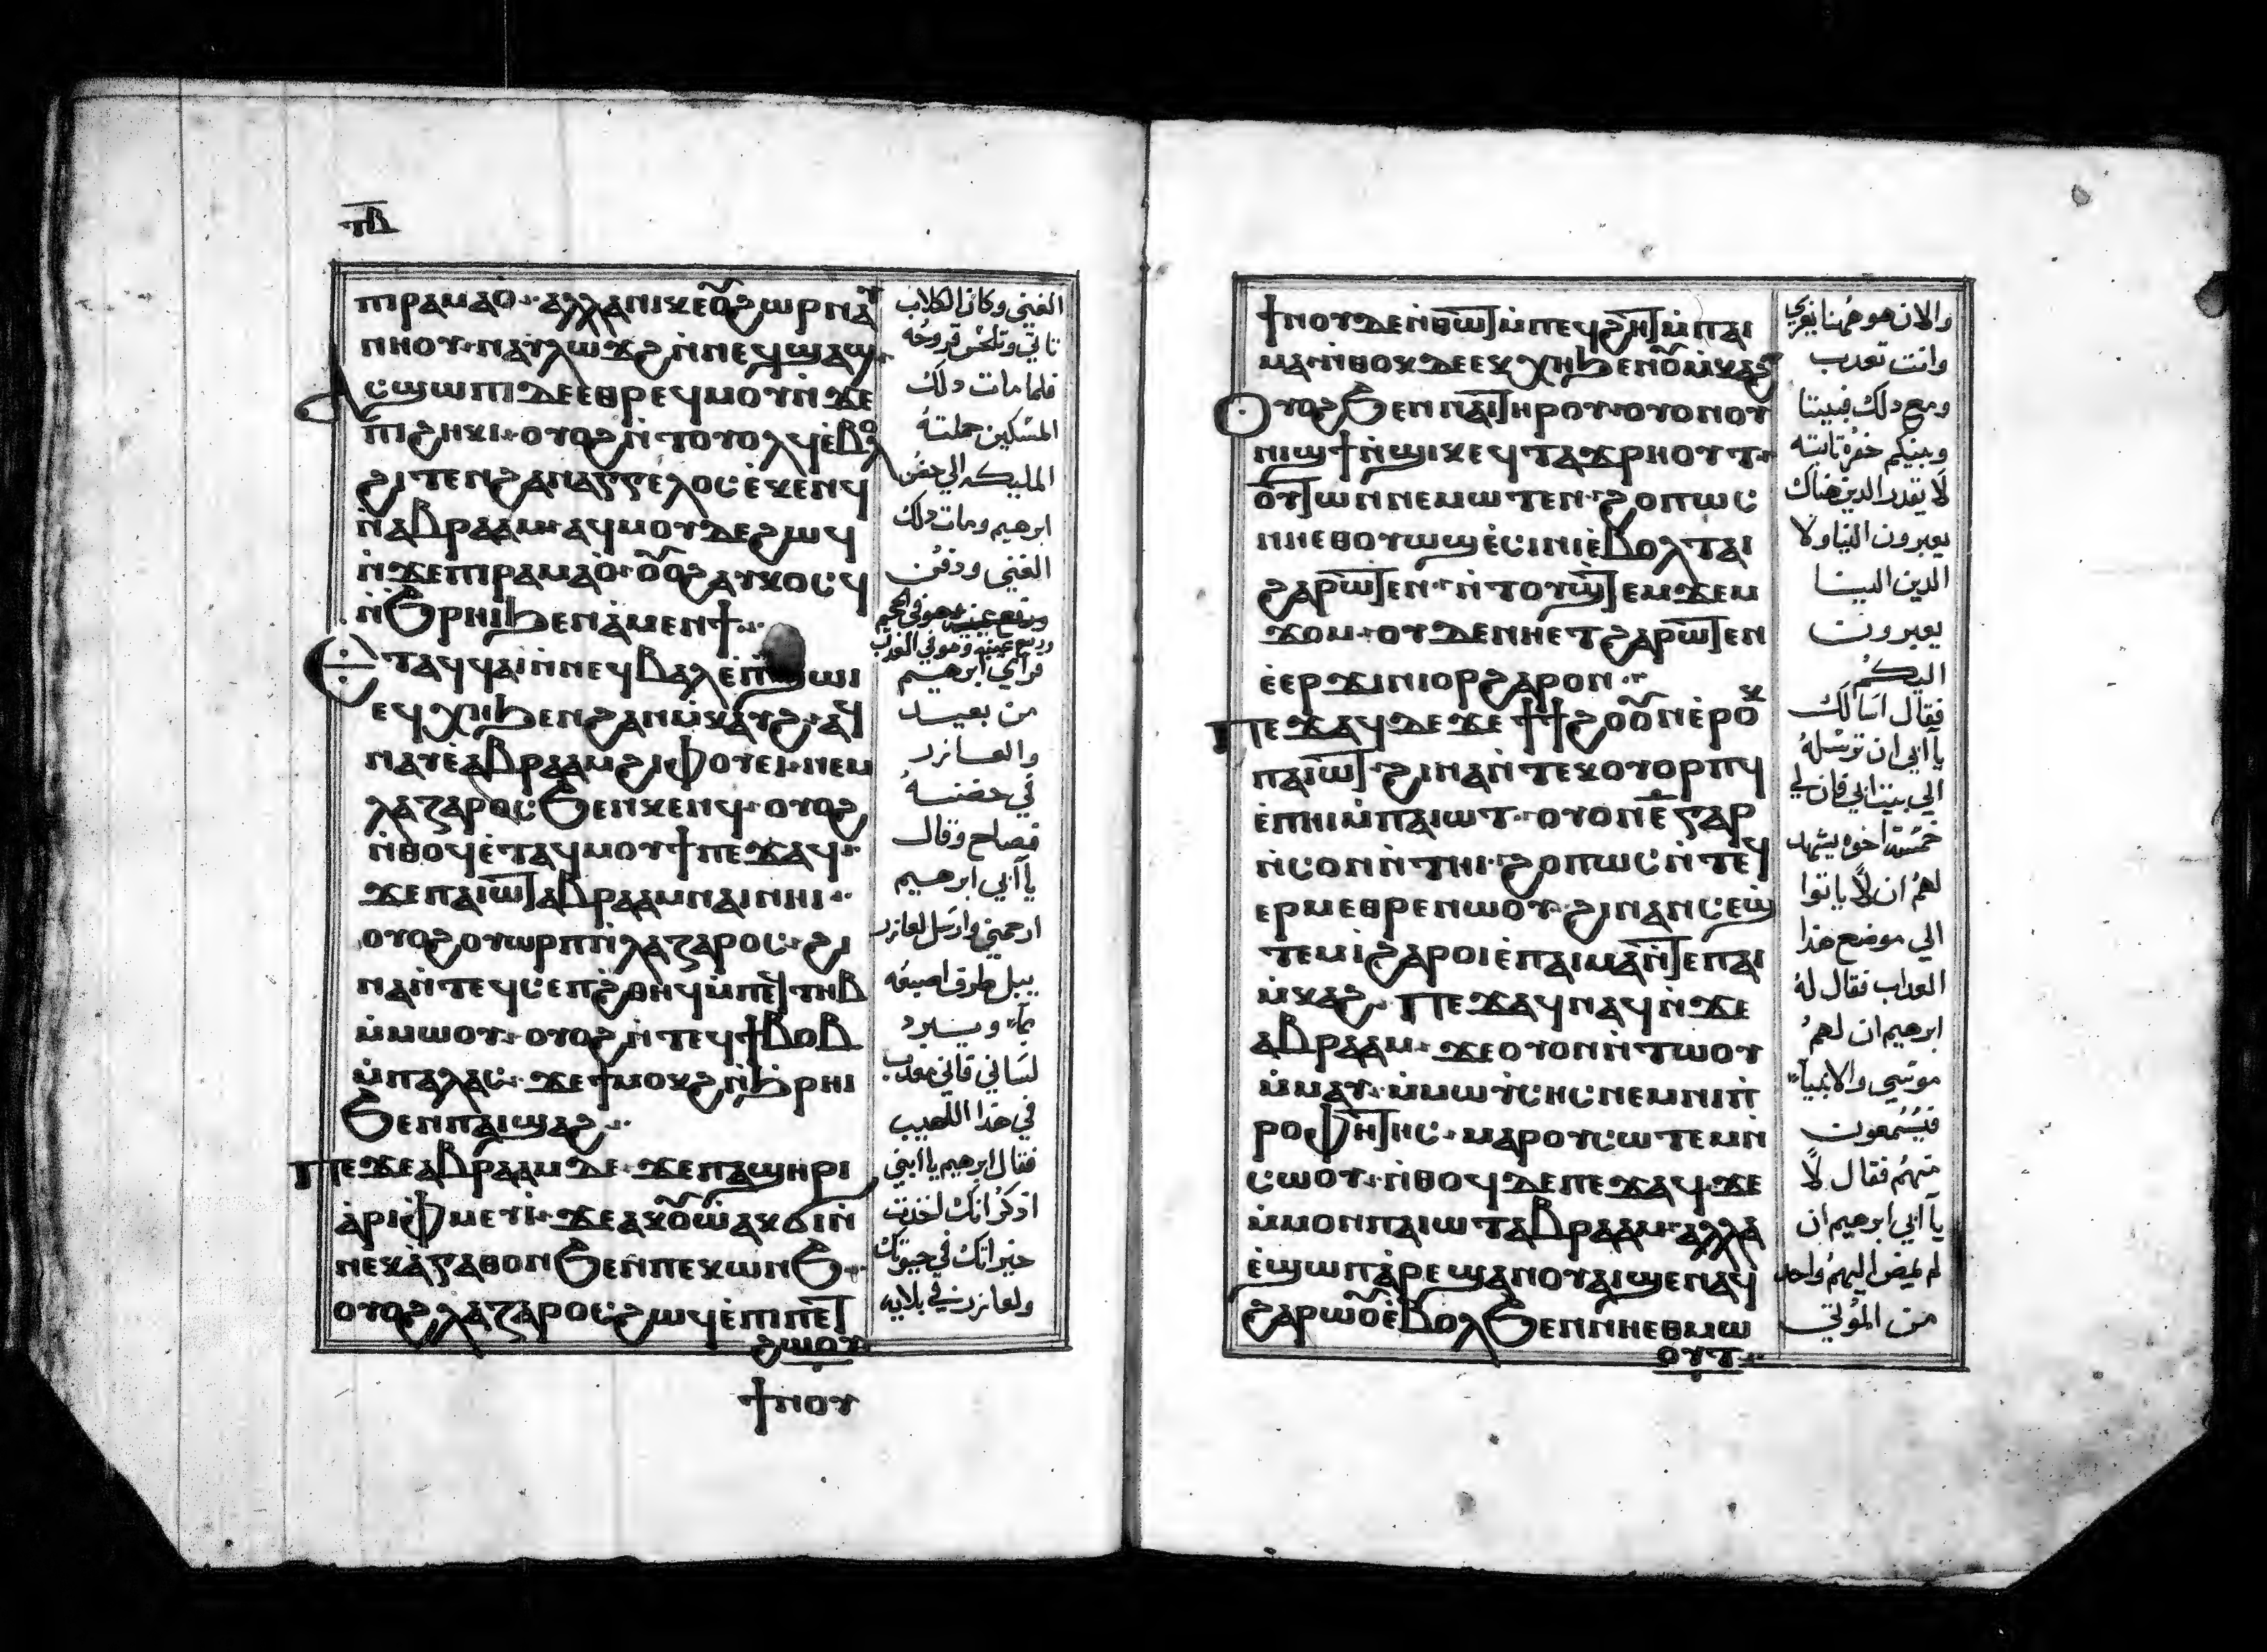 ⲡⲃ
ⲡⲓⲣⲁⲙⲁⲟ ⲁⲗⲗⲁ ⲛⲓⲕⲉⲟⲩϩⲱⲣ ⲛⲁⲩ
ⲛⲏⲟⲩ ⲛⲁⲩⲗⲱϫϩ ⲛ̀ⲛⲉϥϣⲁϣ
Ⲁⲥϣⲱⲡⲓ ⲇⲉ ⲉⲑⲣⲉϥⲙⲟⲩ ⲛ̀ϫⲉ
ⲡⲓϩⲏⲕⲓ ⲟⲩⲟϩ ⲛ̀ⲧⲟⲩⲟⲗϥ ⲉ̀ⲃⲟⲗ
ϩⲓⲧⲉⲛ ϩⲁⲛⲁⲅⲅⲉⲗⲟⲥ ⲉ̀ⲕⲉⲛϥ
ⲛ̀ⲁⲃⲣⲁⲁⲙ ⲁϥⲙⲟⲩ ⲇⲉ ϩⲱϥ
ⲛ̀ϫⲉ ⲡⲓⲣⲁⲙⲁⲟ̀ ⲟⲩⲟϩ ⲁⲩⲕⲟⲥϥ
ⲛ̀ϧⲣⲏⲓ ϧⲉⲛ ⲁ̀ⲙⲉⲛϯ
Ⲉⲧⲁϥϥⲁⲓ ⲛ̀ⲛⲉϥⲃⲁⲗ ⲉ̀ⲡϣⲱⲓ
ⲉϥⲭⲏ ϧⲉⲛ ϩⲁⲛⲙ̀ⲕⲁⲩϩ ⲁϥ
ⲛⲁⲩ ⲉ̀ⲁⲃⲣⲁⲁⲙ ϩⲓⲫⲟⲩⲉⲓ ⲛⲉⲙ
ⲗⲁⲍⲁⲣⲟⲥ ϧⲉⲛ ⲕⲉⲛϥ ⲟⲩⲟϩ
ⲛ̀ⲑⲟϥ ⲉ̀ⲧⲁϥⲙⲟⲩϯ ⲡⲉϫⲁϥ
ϫⲉ ⲡⲁⲓⲱⲧ ⲁⲃⲣⲁⲁⲙ ⲛⲁⲓ ⲛⲏⲓ
ⲟⲩⲟϩ ⲟⲩⲱⲣⲡ ⲛ̀ⲗⲁⲍⲁⲣⲟⲥ ϩⲓ
ⲛⲁ ⲛ̀ⲧⲉϥⲥⲉⲡ ϩⲑⲏϥ ⲙ̀ⲡⲉϥⲧⲏⲃ
ⲙ̀ⲙⲱⲟⲩ ⲟⲩⲟϩ ⲛ̀ⲧⲉϥϯⲃⲟⲃ
ⲙ̀ⲡⲁⲗⲁⲥ ϫⲉ ϯⲙⲟⲕϩ ⲛ̀ϧⲣⲏⲓ
ϧⲉⲛ ⲡⲁⲓϣⲁϩ
Ⲡⲉϫⲉ ⲁⲃⲣⲁⲁⲙ ⲇⲉ ϫⲉ ⲡⲁϣⲏⲣⲓ
ⲁ̀ⲣⲓⲫⲙⲉⲩⲓ̀ ϫⲉ ⲁⲕⲟⲩⲱ̀ ⲁⲕϭⲓ ⲛ̀
ⲛⲉⲕⲁ̀ⲅⲁⲑⲟⲛ ϧⲉⲛ ⲡⲉⲕⲱⲛϧ
ⲟⲩⲟϩ ⲗⲁⲍⲁⲣⲟⲥ ϩⲱϥ ⲉ̀ⲡⲓⲡⲉⲧ
ϩⲱⲟⲩ
ϯⲛⲟⲩ
الغني وكان الكلاب
تاتي وتلحس قروحه
فلما مات ذلك
المسكين حملته
المليكه الي حضن
ابرهيم ومات ذلك
الغني ودفن
ورفع عينيه وهو في الجحيم
ورفع عينيه وهو في العذاب
فراي ابرهيم
من بعيد
والعازر
في حضنه
فصاح وقال
يا ابي ابرهيم
ارحمني وارسل لعازر
يبل طرف اصبعه
بما ويبرد
لساني فاني معذب
في هذا اللهيب
فقال ابرهيم يا ابني
اذكر انك اخذت
خيراتك في حيوتك
ولعازر في بلايه
ϯⲛⲟⲩ ⲇⲉ ⲛ̀ⲑⲱⲧ ⲙ̀ⲡⲉϥϩⲏⲧ ⲙ̀ⲡⲁⲓ
ⲙⲁ ⲛ̀ⲑⲟⲕ ⲇⲉ ⲉⲕⲭⲏ ϧⲉⲛ ⲟⲩⲙ̀ⲕⲁϩ
Ⲟⲩⲟϩ ϧⲉⲛ ⲛⲁⲓ ⲧⲏⲣⲟⲩ ⲟⲩⲟⲛ ⲟⲩ
ⲛⲓϣϯ ⲛ̀ϣⲓⲕ ⲉϥⲧⲁϫⲣⲏⲟⲩⲧ
ⲟⲩⲧⲱⲛ ⲛⲉⲙⲱⲧⲉⲛ ϩⲟⲡⲱⲥ
ⲛⲏⲉⲑⲟⲩⲱϣ ⲉ̀ⲥⲓⲛⲓ ⲉ̀ⲃⲟⲗ ⲧⲁⲓ
ϩⲁⲣⲱⲧⲉⲛ ⲛ̀ⲧⲟⲩϣⲧⲉⲙϫⲉⲙ
ϫⲟⲙ ⲟⲩⲇⲉ ⲛⲏⲉⲧϩⲁⲣⲱⲧⲉⲛ
ⲉ̀ⲉⲣϫⲓⲛⲓⲟⲣ ϩⲁⲣⲟⲛ
Ⲡⲉϫⲁϥ ⲇⲉ ϫⲉ ϯϯϩⲟ ⲟⲩⲛ ⲉ̀ⲣⲟⲕ
ⲡⲁⲓⲱⲧ ϩⲓⲛⲁ ⲛ̀ⲧⲉⲕⲟⲩⲟⲣⲡϥ
ⲉ̀ⲡⲏⲓ ⲙ̀ⲡⲁⲓⲱⲧ ⲟⲩⲟⲛ ⲉ̅ ⲅⲁⲣ
ⲛ̀ⲥⲟⲛ ⲛ̀ⲧⲏⲓ ϩⲟⲡⲱⲥ ⲛ̀ⲧⲉϥ
ⲉⲣⲙⲉⲑⲣⲉ ⲛⲱⲟⲩ ϩⲓⲛⲁ ⲛⲥⲉϣ
ⲧⲉⲙⲓ̀ ϩⲁⲣⲟⲓ ⲉ̀ⲡⲁⲓⲙⲁ ⲛ̀ⲧⲉ ⲡⲁⲓ
ⲙ̀ⲕⲁϩ Ⲡⲉϫⲁϥ ⲛⲁϥ ⲛ̀ϫⲉ
ⲁⲃⲣⲁⲁⲙ ϫⲉ ⲟⲩⲟⲛ ⲛ̀ⲧⲱⲟⲩ
ⲙ̀ⲙⲁⲩ ⲙ̀ⲙⲱⲩ̀ⲥⲏⲥ ⲛⲉⲙ ⲛⲓⲡ̀
ⲣⲟⲫⲏⲧⲏⲥ ⲙⲁⲣⲟⲩⲥⲱⲧⲉⲙ ⲛ̀
ⲥⲱⲟⲩ ⲛ̀ⲑⲟϥ ⲇⲉ ⲡⲉϫⲁϥ ϫⲉ
ⲙ̀ⲙⲟⲛ ⲡⲁⲓⲱⲧ ⲁⲃⲣⲁⲁⲙ ⲁⲗⲗⲁ
ⲉ̀ϣⲱⲡ ⲁ̀ⲣⲉϣⲁⲛ ⲟⲩⲁⲓ ϣⲉⲛⲁϥ
ϩⲁⲣⲱⲟⲩ ⲉ̀ⲃⲟⲗ ϧⲉⲛ ⲛⲏⲉⲑⲙⲱ
ⲟⲩⲧ
والان هو ههنا يعزي
وانت تعذب
ومع ذلك فبيننا
وبينكم خفره ثابته
لا يقدر الذين هناك
يعبرون الينا ولا
الذين الينا
يعبرون
اليكم
فقال اسالك
يا ابي ان ترسله
الي بيت ابي فان لي
خمسة اخوه يشهد
لهم ان لا ياتوا
الي موضع هذا
العذاب فقال له
ابرهيم ان لهم
موسي والانبيا
فيسمعون
منهم فقال لا
يا ابي ابرهيم ان
لم يمض اليهم واحد
من الموتي